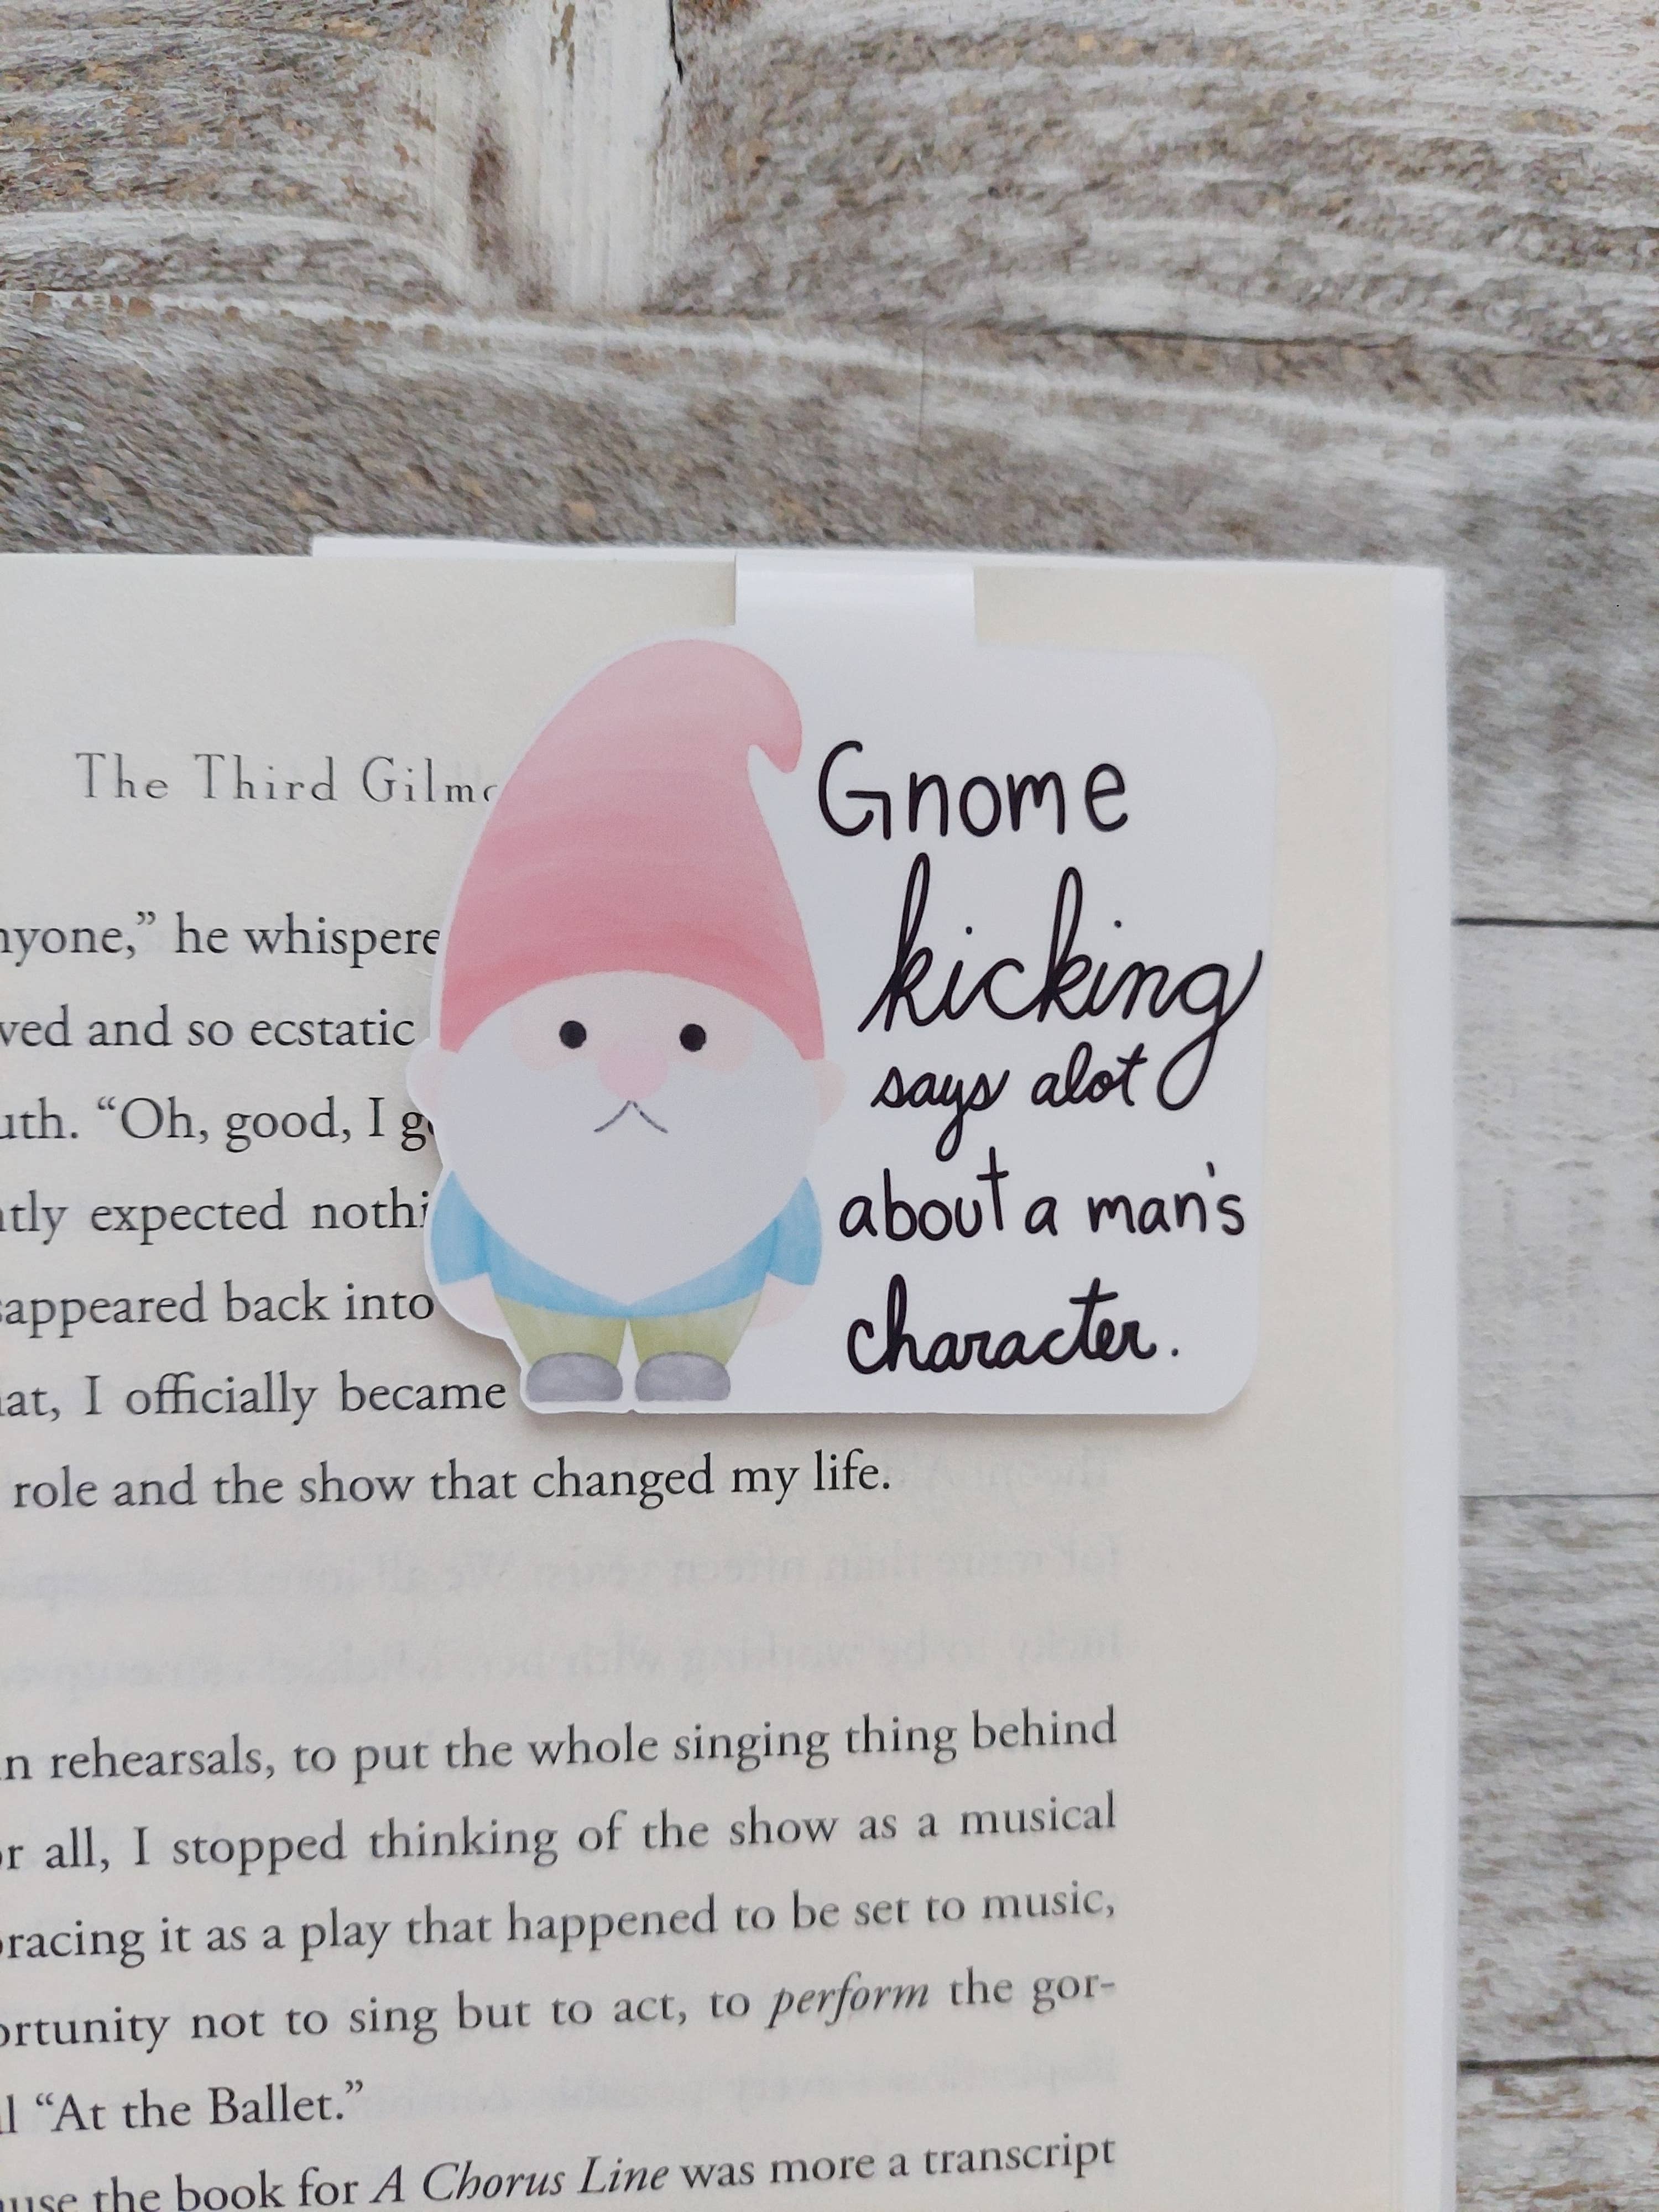 The Third Gilmo
nyone,” he whispere
ved and so ecstatic
uth. “Oh, good, I g
ntly expected nothi
sappeared back into
hat, I officially became
role and the show that changed my life.
Gnome
kicking
says alot
about a man's
character.
in rehearsals, to put the whole singing thing behind
or all, I stopped thinking of the show as a musical
bracing it as a play that happened to be set to music,
ortunity not to sing but to act, to perform the gor-
l “At the Ballet.”
use the book for A Chorus Line was more a transcript